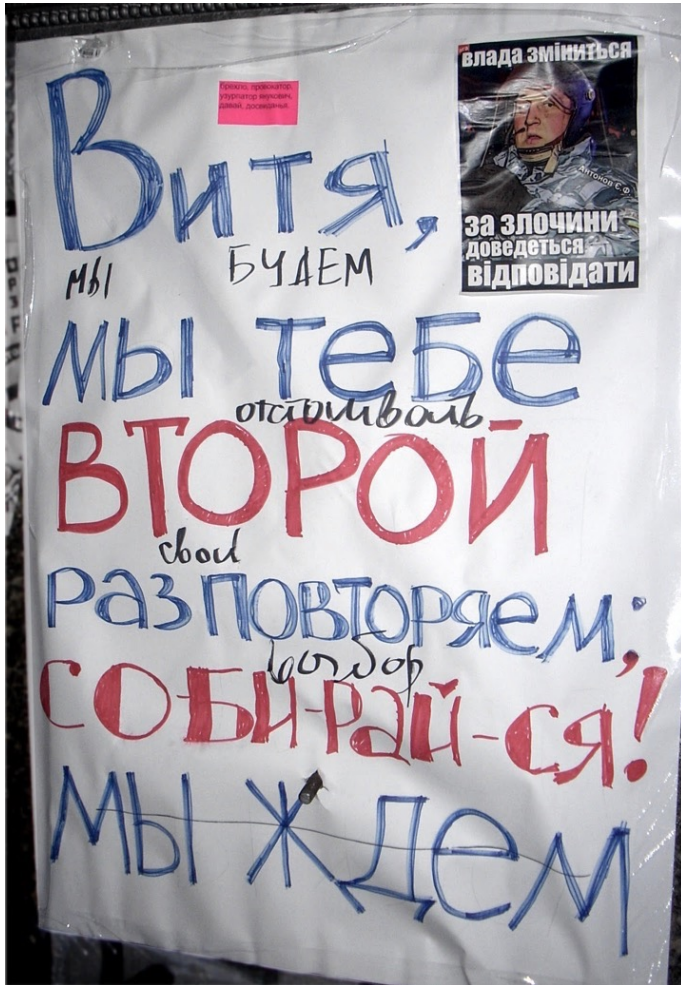 Витя,
брехло, провокатор,
узурпатор янукович,
давай, досвиданья.
влада зміниться
Антонов Є.Ф
за злочини
доведеться
відповідати
мы будем
мы тебе
отстаивать
второй
свой
раз повторяем;
выбор
со-би-рай-ся!
мы ждем